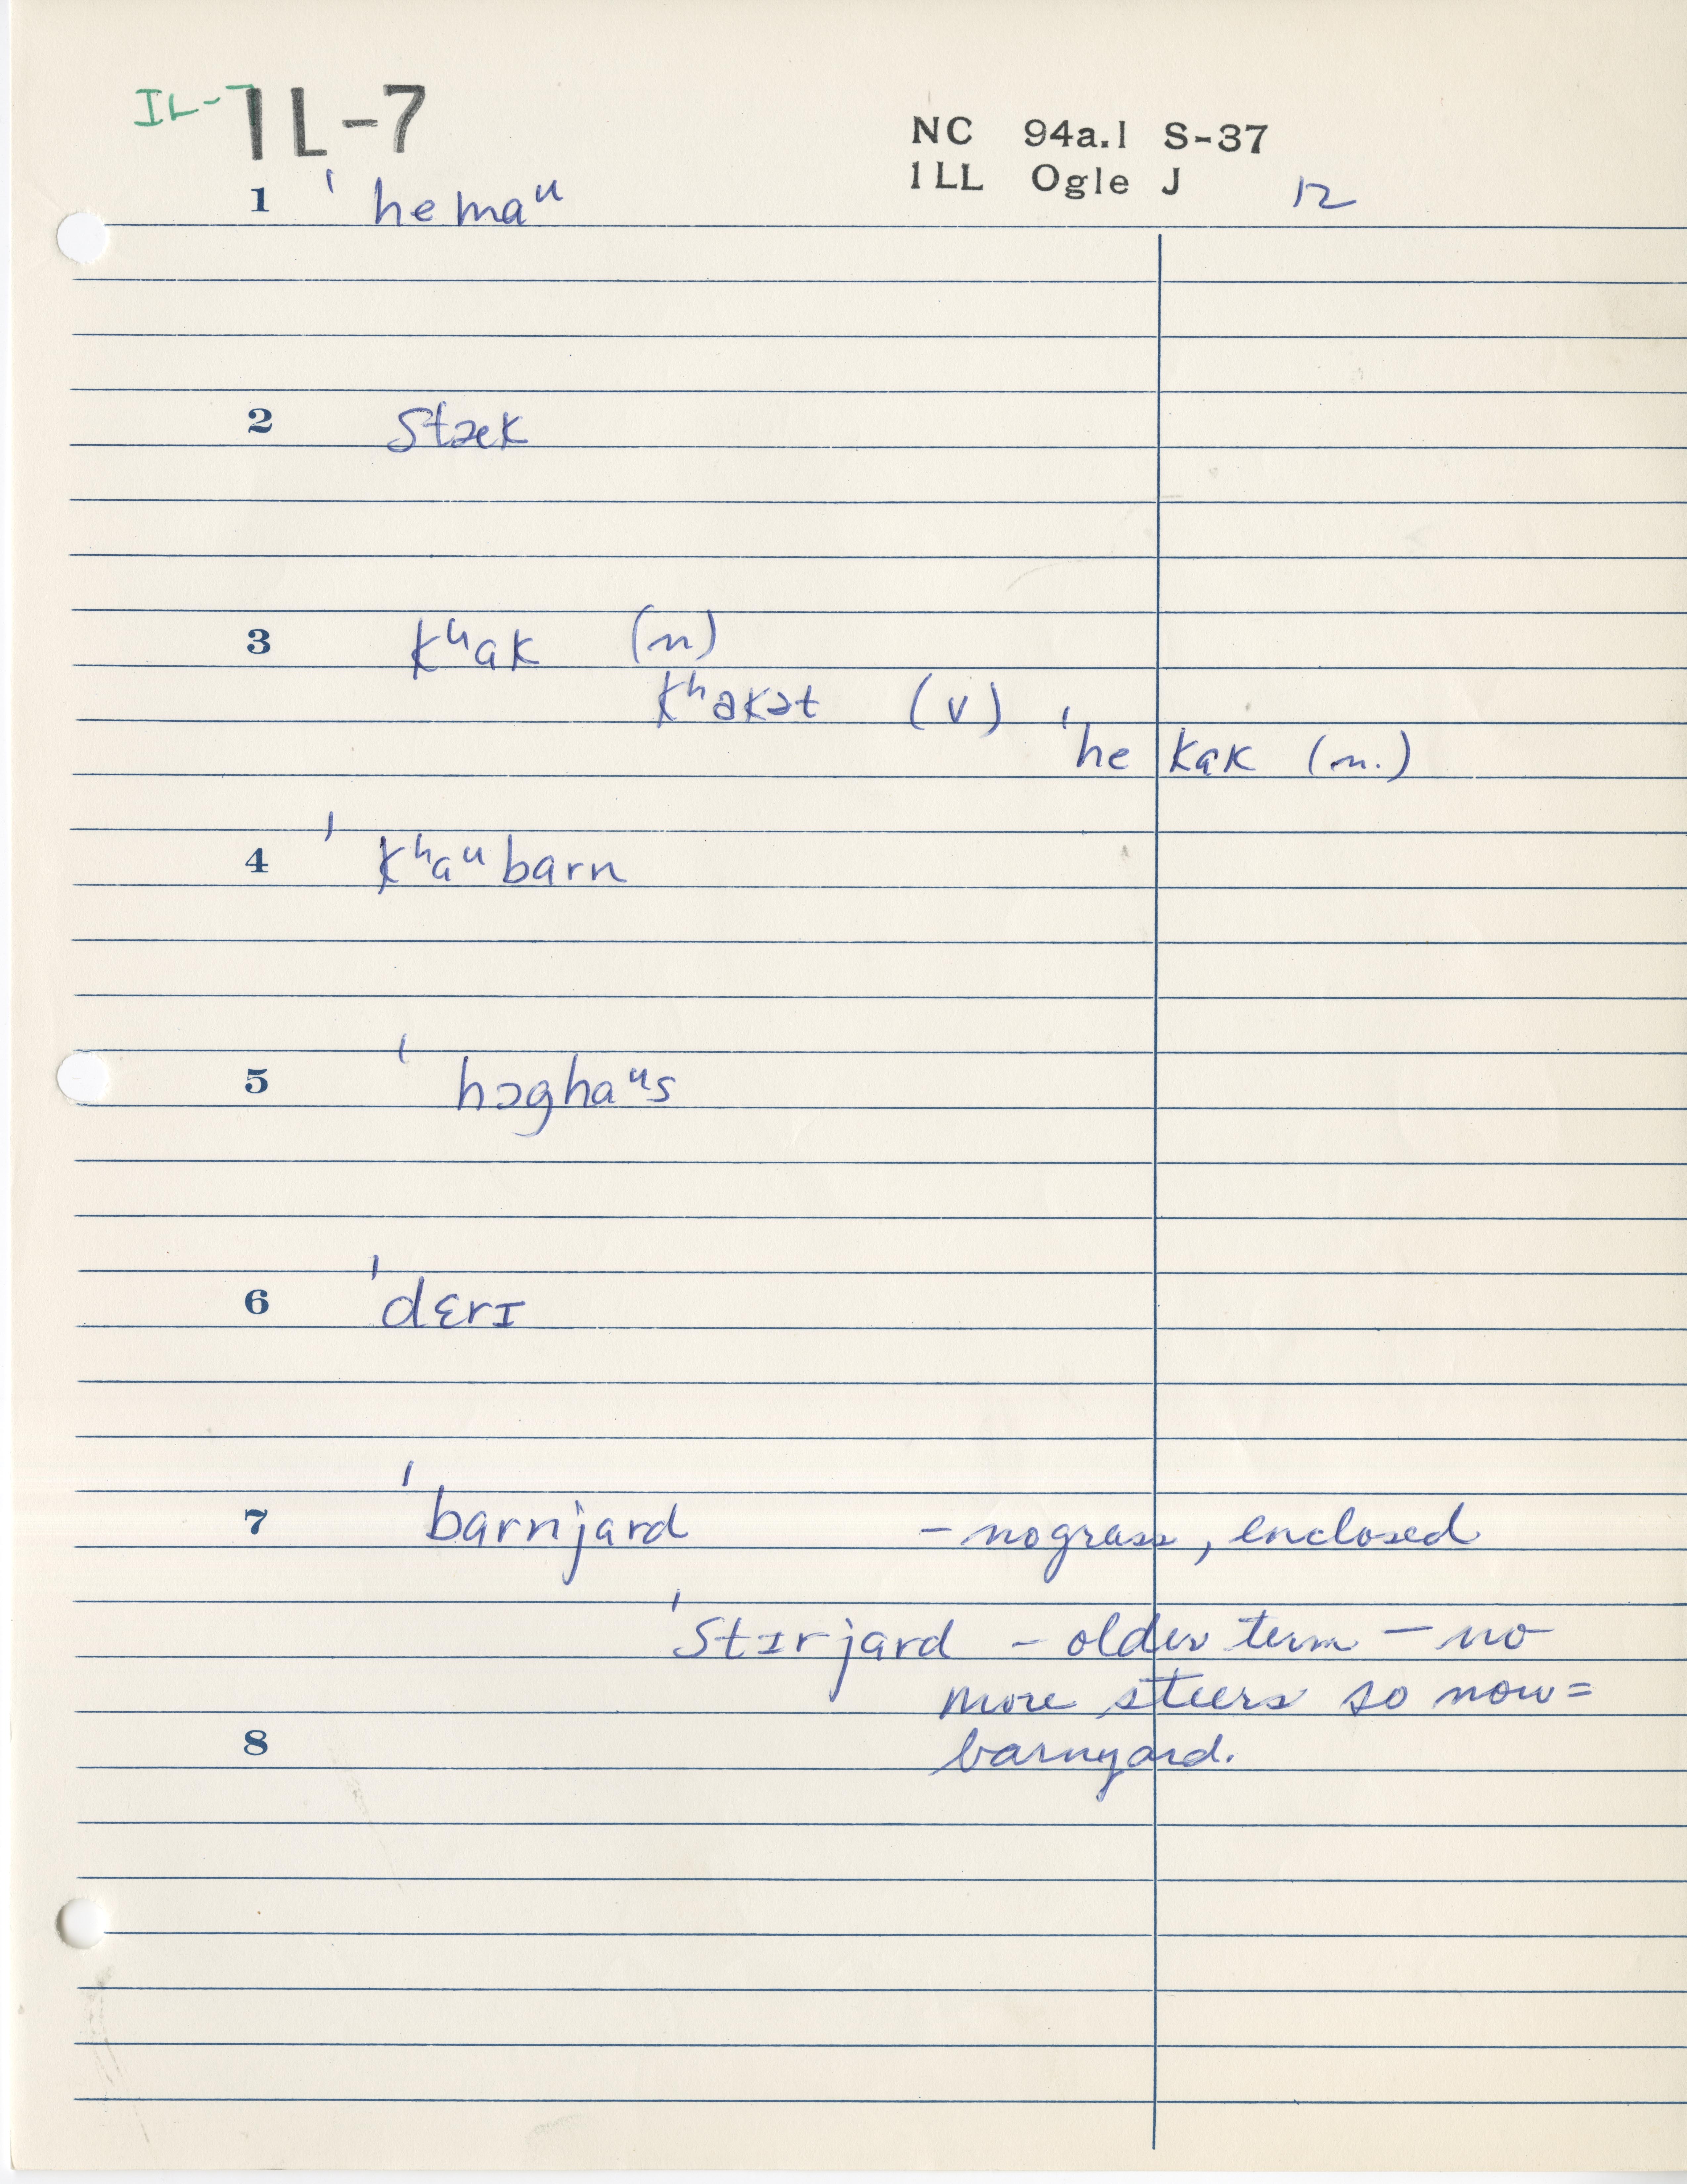 IL-7 IL-7
NC 94a.1 S-37
1LL Ogle J 12
1 ˈhemaᵘ
2 stæk
3 kʰak (n)
kʰakət (v)
ˈhe kak (n.)
4 ˈkʰaᵘbarn
5 ˈhɔghaᵘs
6 ˈdɛrɪ
7 ˈbarnjard - no grass, enclosed
ˈstɪrjard - older term - no
more steers so now =
8 barnyard.